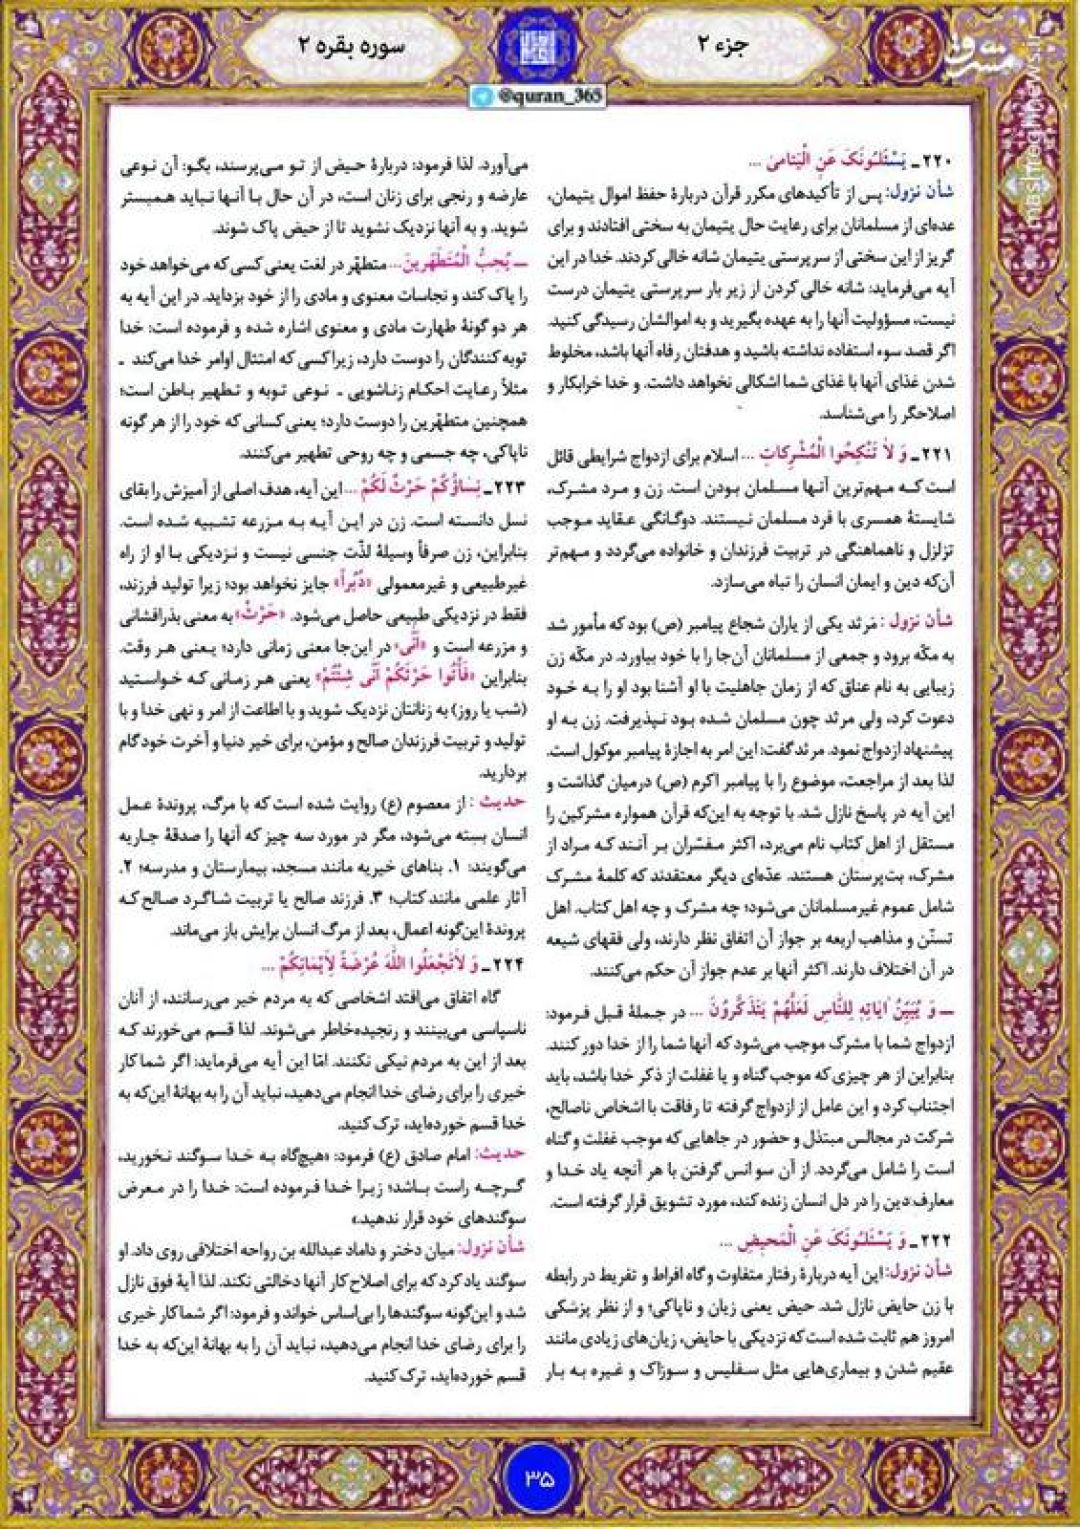 جزء ۲
سوره بقره ۲
@quran_365
مشرق
mashreghnews.ir
۲۲۰ـ یَسْئَلُونَکَ عَنِ الْیَتامیٰ ...
شأن نزول: پس از تأکیدهای مکرر قرآن دربارهٔ حفظ اموال یتیمان،
عده‌ای از مسلمانان برای رعایت حال یتیمان به سختی افتادند و برای
گریز از این سختی از سرپرستی یتیمان شانه خالی کردند. خدا در این
آیه می‌فرماید: شانه خالی کردن از زیر بار سرپرستی یتیمان درست
نیست، مسؤولیت آنها را به عهده بگیرید و به اموالشان رسیدگی کنید.
اگر قصد سوء استفاده نداشته باشید و هدفتان رفاه آنها باشد، مخلوط
شدن غذای آنها با غذای شما اشکالی نخواهد داشت. و خدا خرابکار و
اصلاحگر را می‌شناسد.
۲۲۱ـ وَ لاٰ تَنْکِحُوا الْمُشْرِکاتِ ... اسلام برای ازدواج شرایطی قائل
است که مهم‌ترین آنها مسلمان بودن است. زن و مرد مشرک،
شایستهٔ همسری با فرد مسلمان نیستند. دوگانگی عقاید موجب
تزلزل و ناهماهنگی در تربیت فرزندان و خانواده می‌گردد و مهم‌تر
آن‌که دین و ایمان انسان را تباه می‌سازد.
شأن نزول : مَرثد یکی از یاران شجاع پیامبر (ص) بود که مأمور شد
به مکّه برود و جمعی از مسلمانان آن‌جا را با خود بیاورد. در مکّه زن
زیبایی به نام عناق که از زمان جاهلیت با او آشنا بود او را به خود
دعوت کرد، ولی مرثد چون مسلمان شده بود نپذیرفت. زن به او
پیشنهاد ازدواج نمود. مرثد گفت: این امر به اجازهٔ پیامبر موکول است.
لذا بعد از مراجعت، موضوع را با پیامبر اکرم (ص) درمیان گذاشت و
این آیه در پاسخ نازل شد. با توجه به این‌که قرآن همواره مشرکین را
مستقل از اهل کتاب نام می‌برد، اکثر مفسّران بر آنند که مراد از
مشرک، بت‌پرستان هستند. عدّه‌ای دیگر معتقدند که کلمهٔ مشرک
شامل عموم غیرمسلمانان می‌شود؛ چه مشرک و چه اهل کتاب. اهل
تسنّن و مذاهب اربعه بر جواز آن اتفاق نظر دارند، ولی فقهای شیعه
در آن اختلاف دارند. اکثر آنها بر عدم جواز آن حکم می‌کنند.
ـ وَ یُبَیِّنُ اٰیاتِهِ لِلنَّاسِ لَعَلَّهُمْ یَتَذَکَّرُونَ ... در جملهٔ قبل فرمود:
ازدواج شما با مشرک موجب می‌شود که آنها شما را از خدا دور کنند.
بنابراین از هر چیزی که موجب گناه و یا غفلت از ذکر خدا باشد، باید
اجتناب کرد و این عامل از ازدواج گرفته تا رفاقت با اشخاص ناصالح،
شرکت در مجالس مبتذل و حضور در جاهایی که موجب غفلت و گناه
است را شامل می‌گردد. از آن سو انس گرفتن با هر آنچه یاد خدا و
معارف دین را در دل انسان زنده کند، مورد تشویق قرار گرفته است.
۲۲۲ـ وَ یَسْئَلُونَکَ عَنِ الْمَحیضِ ...
شأن نزول: این آیه دربارهٔ رفتار متفاوت و گاه افراط و تفریط در رابطه
با زن حایض نازل شد. حیض یعنی زیان و ناپاکی؛ و از نظر پزشکی
امروز هم ثابت شده است که نزدیکی با حایض، زیان‌های زیادی مانند
عقیم شدن و بیماری‌هایی مثل سفلیس و سوزاک و غیره به بار
می‌آورد. لذا فرمود: دربارهٔ حیض از تو می‌پرسند، بگو: آن نوعی
عارضه و رنجی برای زنان است، در آن حال با آنها نباید همبستر
شوید. و به آنها نزدیک نشوید تا از حیض پاک شوند.
ـ یُحِبُّ الْمُتَطَهِّرینَ... متطهّر در لغت یعنی کسی که می‌خواهد خود
را پاک کند و نجاسات معنوی و مادی را از خود بزداید. در این آیه به
هر دو گونهٔ طهارت مادی و معنوی اشاره شده و فرموده است: خدا
توبه کنندگان را دوست دارد، زیرا کسی که امتثال اوامر خدا می‌کند ـ
مثلاً رعایت احکام زناشویی ـ نوعی توبه و تطهیر باطن است؛
همچنین متطهّرین را دوست دارد؛ یعنی کسانی که خود را از هر گونه
ناپاکی، چه جسمی و چه روحی تطهیر می‌کنند.
۲۲۳ـ نِساؤُکُمْ حَرْثٌ لَکُمْ ... این آیه، هدف اصلی از آمیزش را بقای
نسل دانسته است. زن در این آیه به مزرعه تشبیه شده است.
بنابراین، زن صرفاً وسیلهٔ لذّت جنسی نیست و نزدیکی با او از راه
غیرطبیعی و غیرمعمولی «دُبُراً» جایز نخواهد بود؛ زیرا تولید فرزند،
فقط در نزدیکی طبیعی حاصل می‌شود. «حَرْث» به معنی بذرافشانی
و مزرعه است و «اَنّٰی» در این‌جا معنی زمانی دارد؛ یعنی هر وقت.
بنابراین «فَأْتُوا حَرْثَکُمْ اَنّٰی شِئْتُمْ» یعنی هر زمانی که خواستید
(شب یا روز) به زنانتان نزدیک شوید و با اطاعت از امر و نهی خدا و با
تولید و تربیت فرزندان صالح و مؤمن، برای خیر دنیا و آخرت خود گام
بردارید.
حدیث : از معصوم (ع) روایت شده است که با مرگ، پروندهٔ عمل
انسان بسته می‌شود، مگر در مورد سه چیز که آنها را صدقهٔ جاریه
می‌گویند: ۱. بناهای خیریه مانند مسجد، بیمارستان و مدرسه؛ ۲.
آثار علمی مانند کتاب؛ ۳. فرزند صالح یا تربیت شاگرد صالح که
پروندهٔ این‌گونه اعمال، بعد از مرگ انسان برایش باز می‌ماند.
۲۲۴ـ وَ لاٰتَجْعَلُوا اللّٰهَ عُرْضَةً لِاَیْمانِکُمْ ...
گاه اتفاق می‌افتد اشخاصی که به مردم خیر می‌رسانند، از آنان
ناسپاسی می‌بینند و رنجیده‌خاطر می‌شوند. لذا قسم می‌خورند که
بعد از این به مردم نیکی نکنند. امّا این آیه می‌فرماید: اگر شما کار
خیری را برای رضای خدا انجام می‌دهید، نباید آن را به بهانهٔ این‌که به
خدا قسم خورده‌اید، ترک کنید.
حدیث: امام صادق (ع) فرمود: «هیچ‌گاه به خدا سوگند نخورید،
گرچه راست باشد؛ زیرا خدا فرموده است: خدا را در معرض
سوگندهای خود قرار ندهید.»
شأن نزول: میان دختر و داماد عبدالله بن رواحه اختلافی روی داد. او
سوگند یاد کرد که برای اصلاح کار آنها دخالتی نکند. لذا آیهٔ فوق نازل
شد و این‌گونه سوگندها را بی‌اساس خواند و فرمود: اگر شما کار خیری
را برای رضای خدا انجام می‌دهید، نباید آن را به بهانهٔ این‌که به خدا
قسم خورده‌اید، ترک کنید.
۳۵